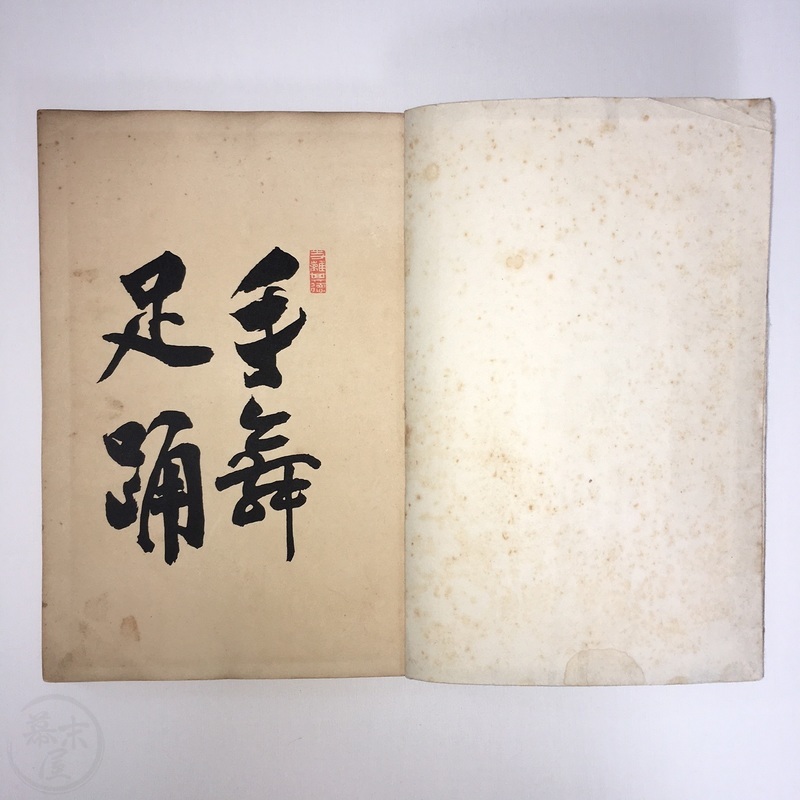 手舞
足踊
幕末屋